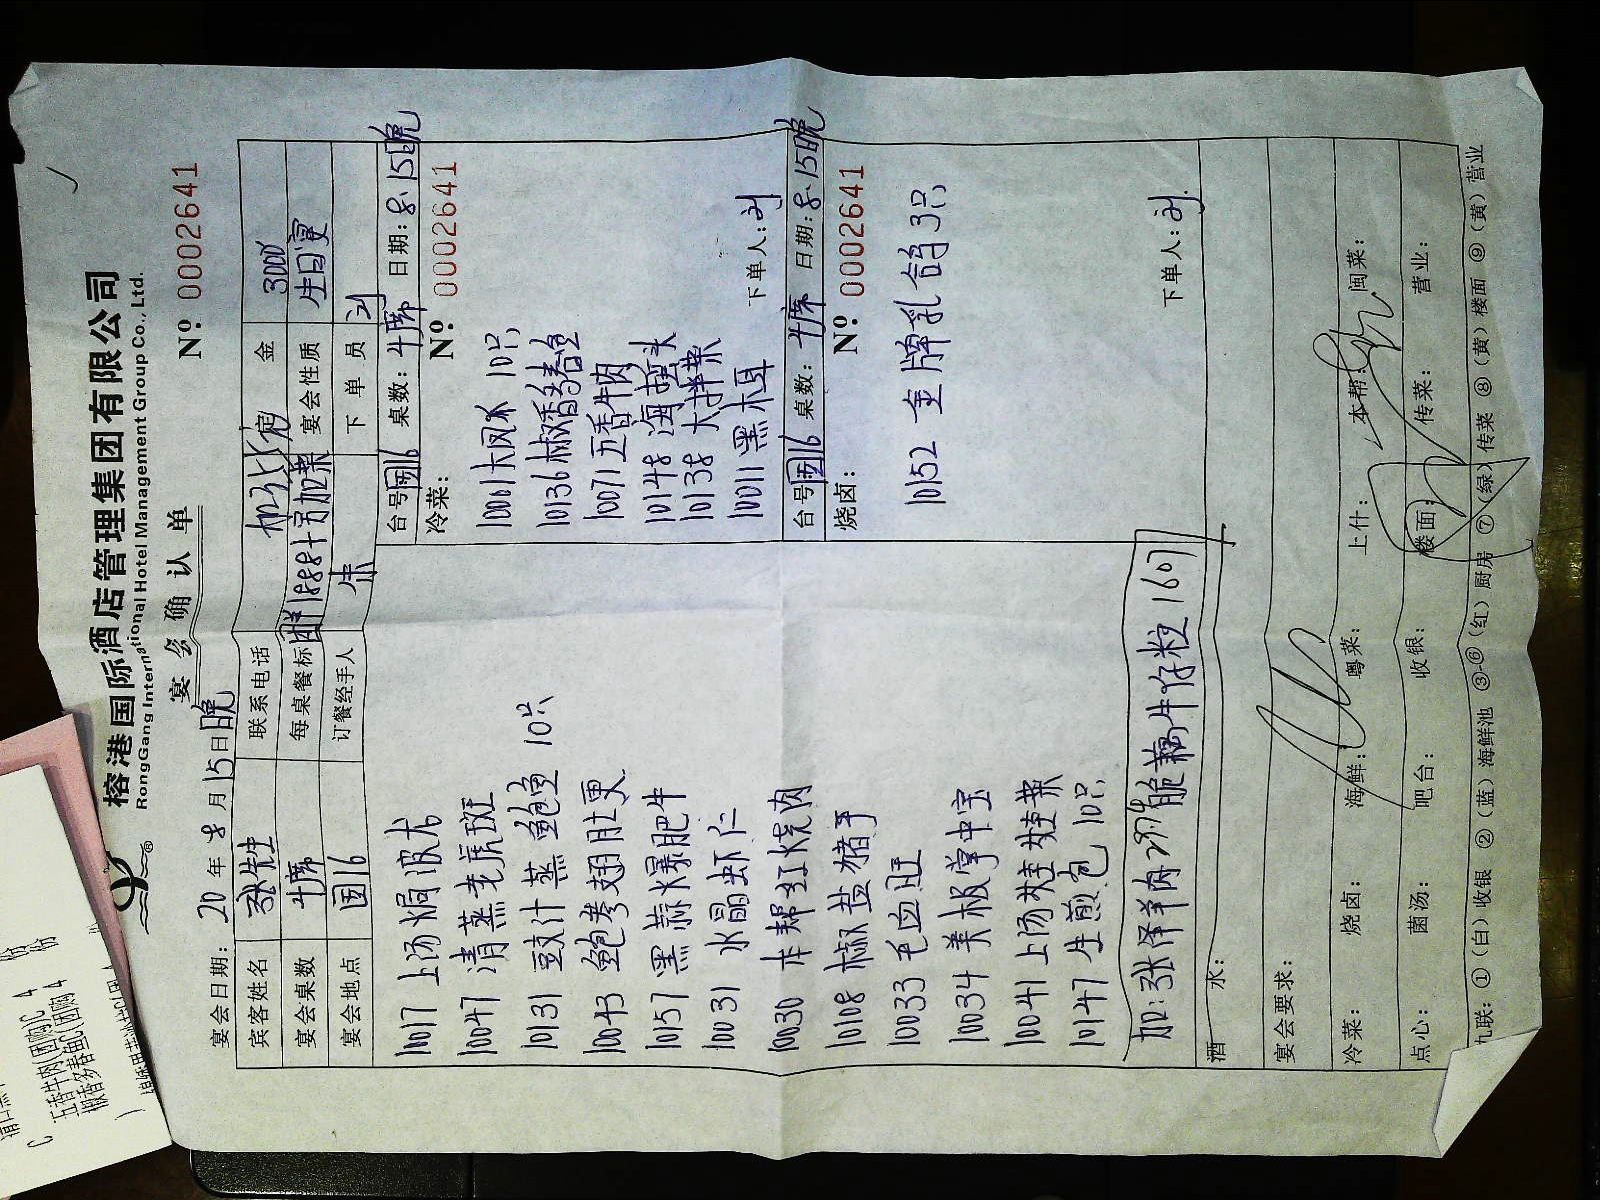 榕港国际酒店管理集团有限公司
RongGang International Hotel Management Group Co., Ltd.
宴会确认单
Nº 0002641
宴会日期: 20 年 8 月 15 日 晚
宾客姓名 张先生 联系电话 定金 3000
宴会桌数 4席 每桌餐标 1888+另加菜 宴会性质 生日宴
宴会地点 国16 订餐经手人 朱 下单员 刘
10017 上汤焗波龙
10047 清蒸老虎斑
10131 豆豉汁蒸鲍鱼 10只
10043 鲍参翅肚更
10157 黑蒜爆肥牛
10031 水晶虾仁
10030 本帮红烧肉
10108 椒盐猪手
10033 毛血旺
10034 美极掌中宝
10041 上汤娃娃菜
10147 生煎包 10只
加: 张泽羊肉 脆藕牛仔粒 160
台号 国16 桌数: 4席 日期: 8.15晚
冷菜: Nº 0002641
10001 大闸 10只
10136 椒香多春鱼
10071 五香牛肉
10148 海蜇头
10138 大拌菜
10011 黑木耳
下单人: 刘
台号 国16 桌数: 4席 日期: 8.15晚
烧卤: Nº 0002641
10152 金牌乳鸽 3只
下单人: 刘
酒水:
宴会要求:
冷菜: 烧卤: 海鲜: 粤菜: 上什: 本帮: 闽菜:
点心: 菌汤: 吧台: 收银: 楼面: 传菜: 营业:
九联: ①(白)收银 ②(蓝)海鲜池 ③-⑥(红)厨房 ⑦(绿)传菜 ⑧(黄)楼面 ⑨(黄)营业
五香牛肉(团购)C 4 份
椒香多春鱼(团购 4 份